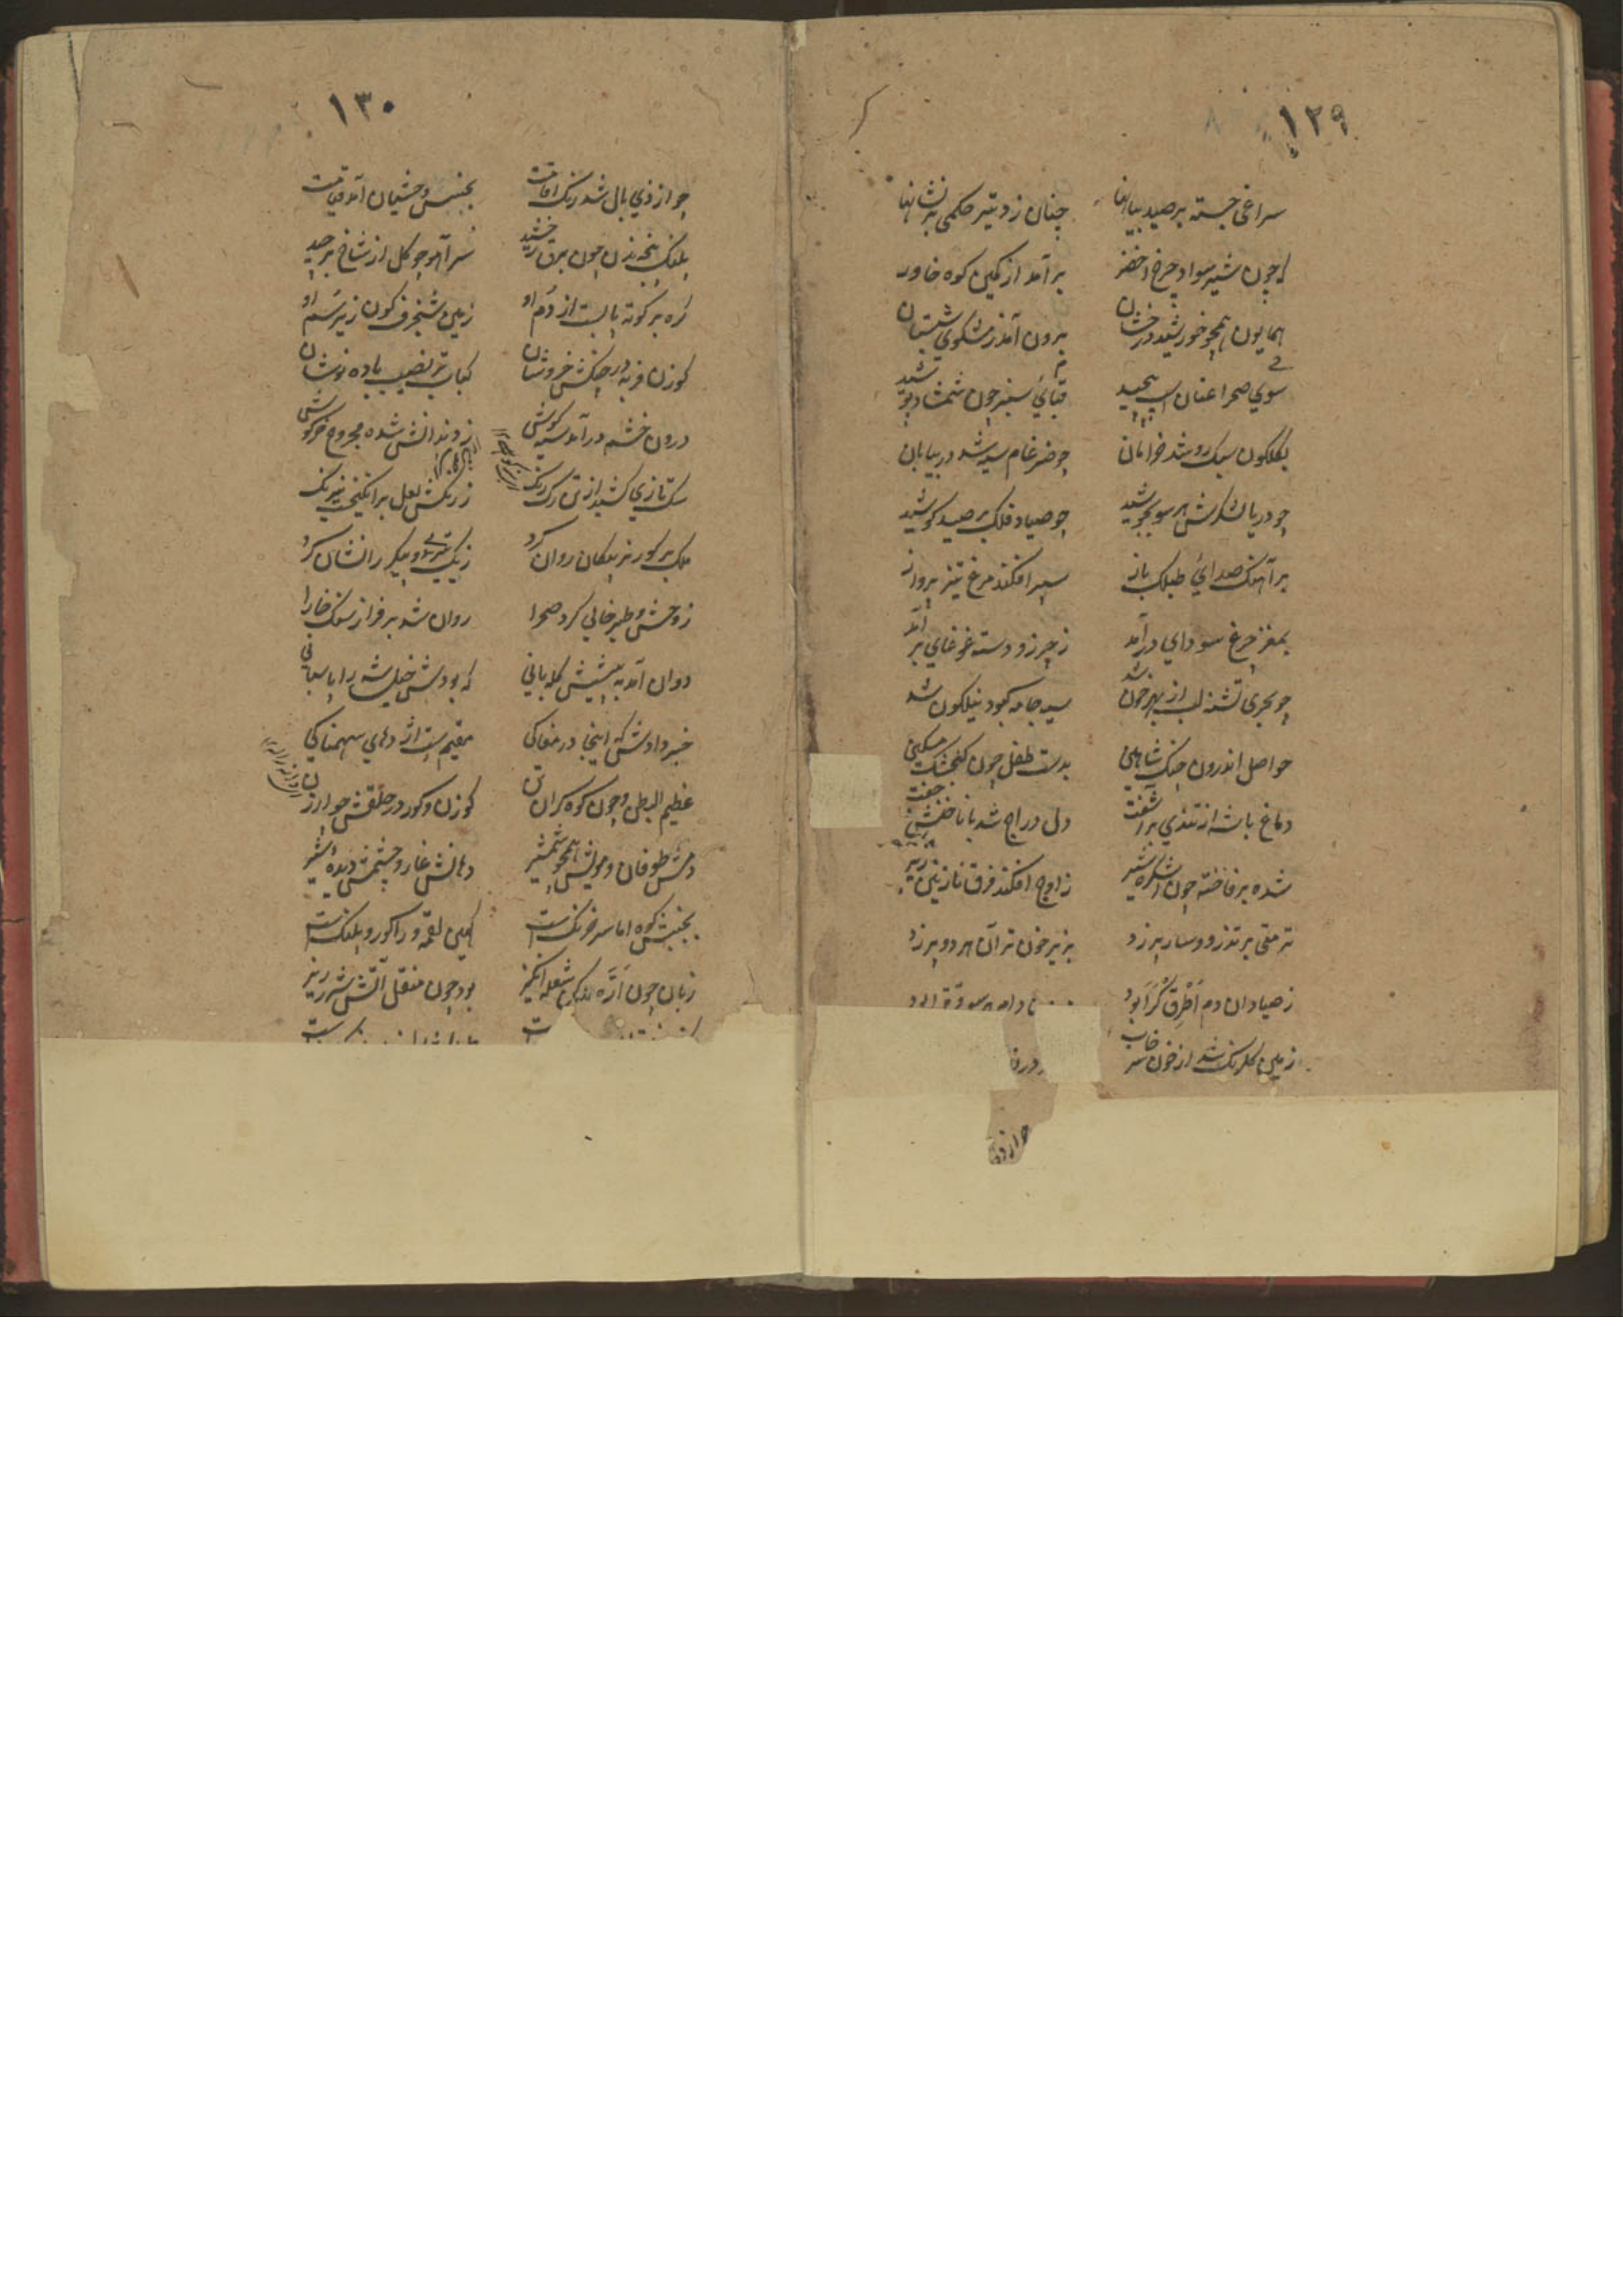 ۱۲۹
سراغی جسته بر صید بیابانها چنان زد تیر حکمی بر نشانها
که چون شیر سواد چرخ اخضر برآمد از کمین کوه خاور
همایون همچو خورشید درخشان برون آمد ز مشکوی شبستان
سوی صحرا عنان اسب پیچید قبای سبز چون شمشاد پوشید
بگلگون سبک رو شد خرامان چو ضرغام سیه شد در بیابان
چو دریا لشکرش هر سو بجوشید چو صیاد فلک بر صید کوشید
بر آهنک صدای طبلک باز سپر افکند مرغ تیز پرواز
بمغز چرغ سودای درآمد ز چرز و دسته غوغای برآمد
چو بحری تشنه لب از بهر خون شد سیه جامه کبود نیلکون شد
حواصل اندرون چنک شاهین بدست طفل چون کنجشک مسکین
دماغ باشه از تندی برآشفت دل دراج شد با ناخنش جفت
شده بر فاخته چون اشکره شیر ز اوج افکند فرق نازنین زیر
ترمتی بر تذرو و سار پر زد بزیر خون تر آن هر دو پر زد
ز صیادان دم اطرق کرا بود
زمین کلرنک شد از خون سرخاب
چو از ذی
۱۳۰
چو از ذی بال شد رنک اقامت بجنبش وحشیان آمد قیامت
پلنک پنجه زن چون برق رخشید سر آهو چو کل از شاخ برچید
ره بر کوته پا بست از دم او زمین شنجرف کون زیر سم او
کوزن فربه در چنکش خروشان کباب تر نصیب باده نوشان
درون خشم درآمد سیه کوشی ز دندانش شده مجروح خرکوشی
سک تازی کشید از تن رک رنک ز رنکش لعل برانکیخت نیرنک
ملک بر کور نر پیکان روان کرد ز یک تیری دو پیکر را نشان کرد
ز وحش و طیر خالی کرد صحرا روان شد بر فراز سنک خارا
دوان آمد به پیشش کله بانی که بودش خیل شه را پاسبانی
خبر دادش که اینجا در مغاکی مقیم است اژدهای سهمناکی
عظیم البطن و چون کوه کران تن کوزن و کور در حلقش چو ارزن
دمش طوفان و مویش همچو شمشیر دهانش غار و چشمش دیده شیر
بجنبش کوه اما سرخ رنک است کمین لقمه ورا کور و پلنک است
زبان چون اره شعله انکیز بود چون منقل آتش شرر ریز